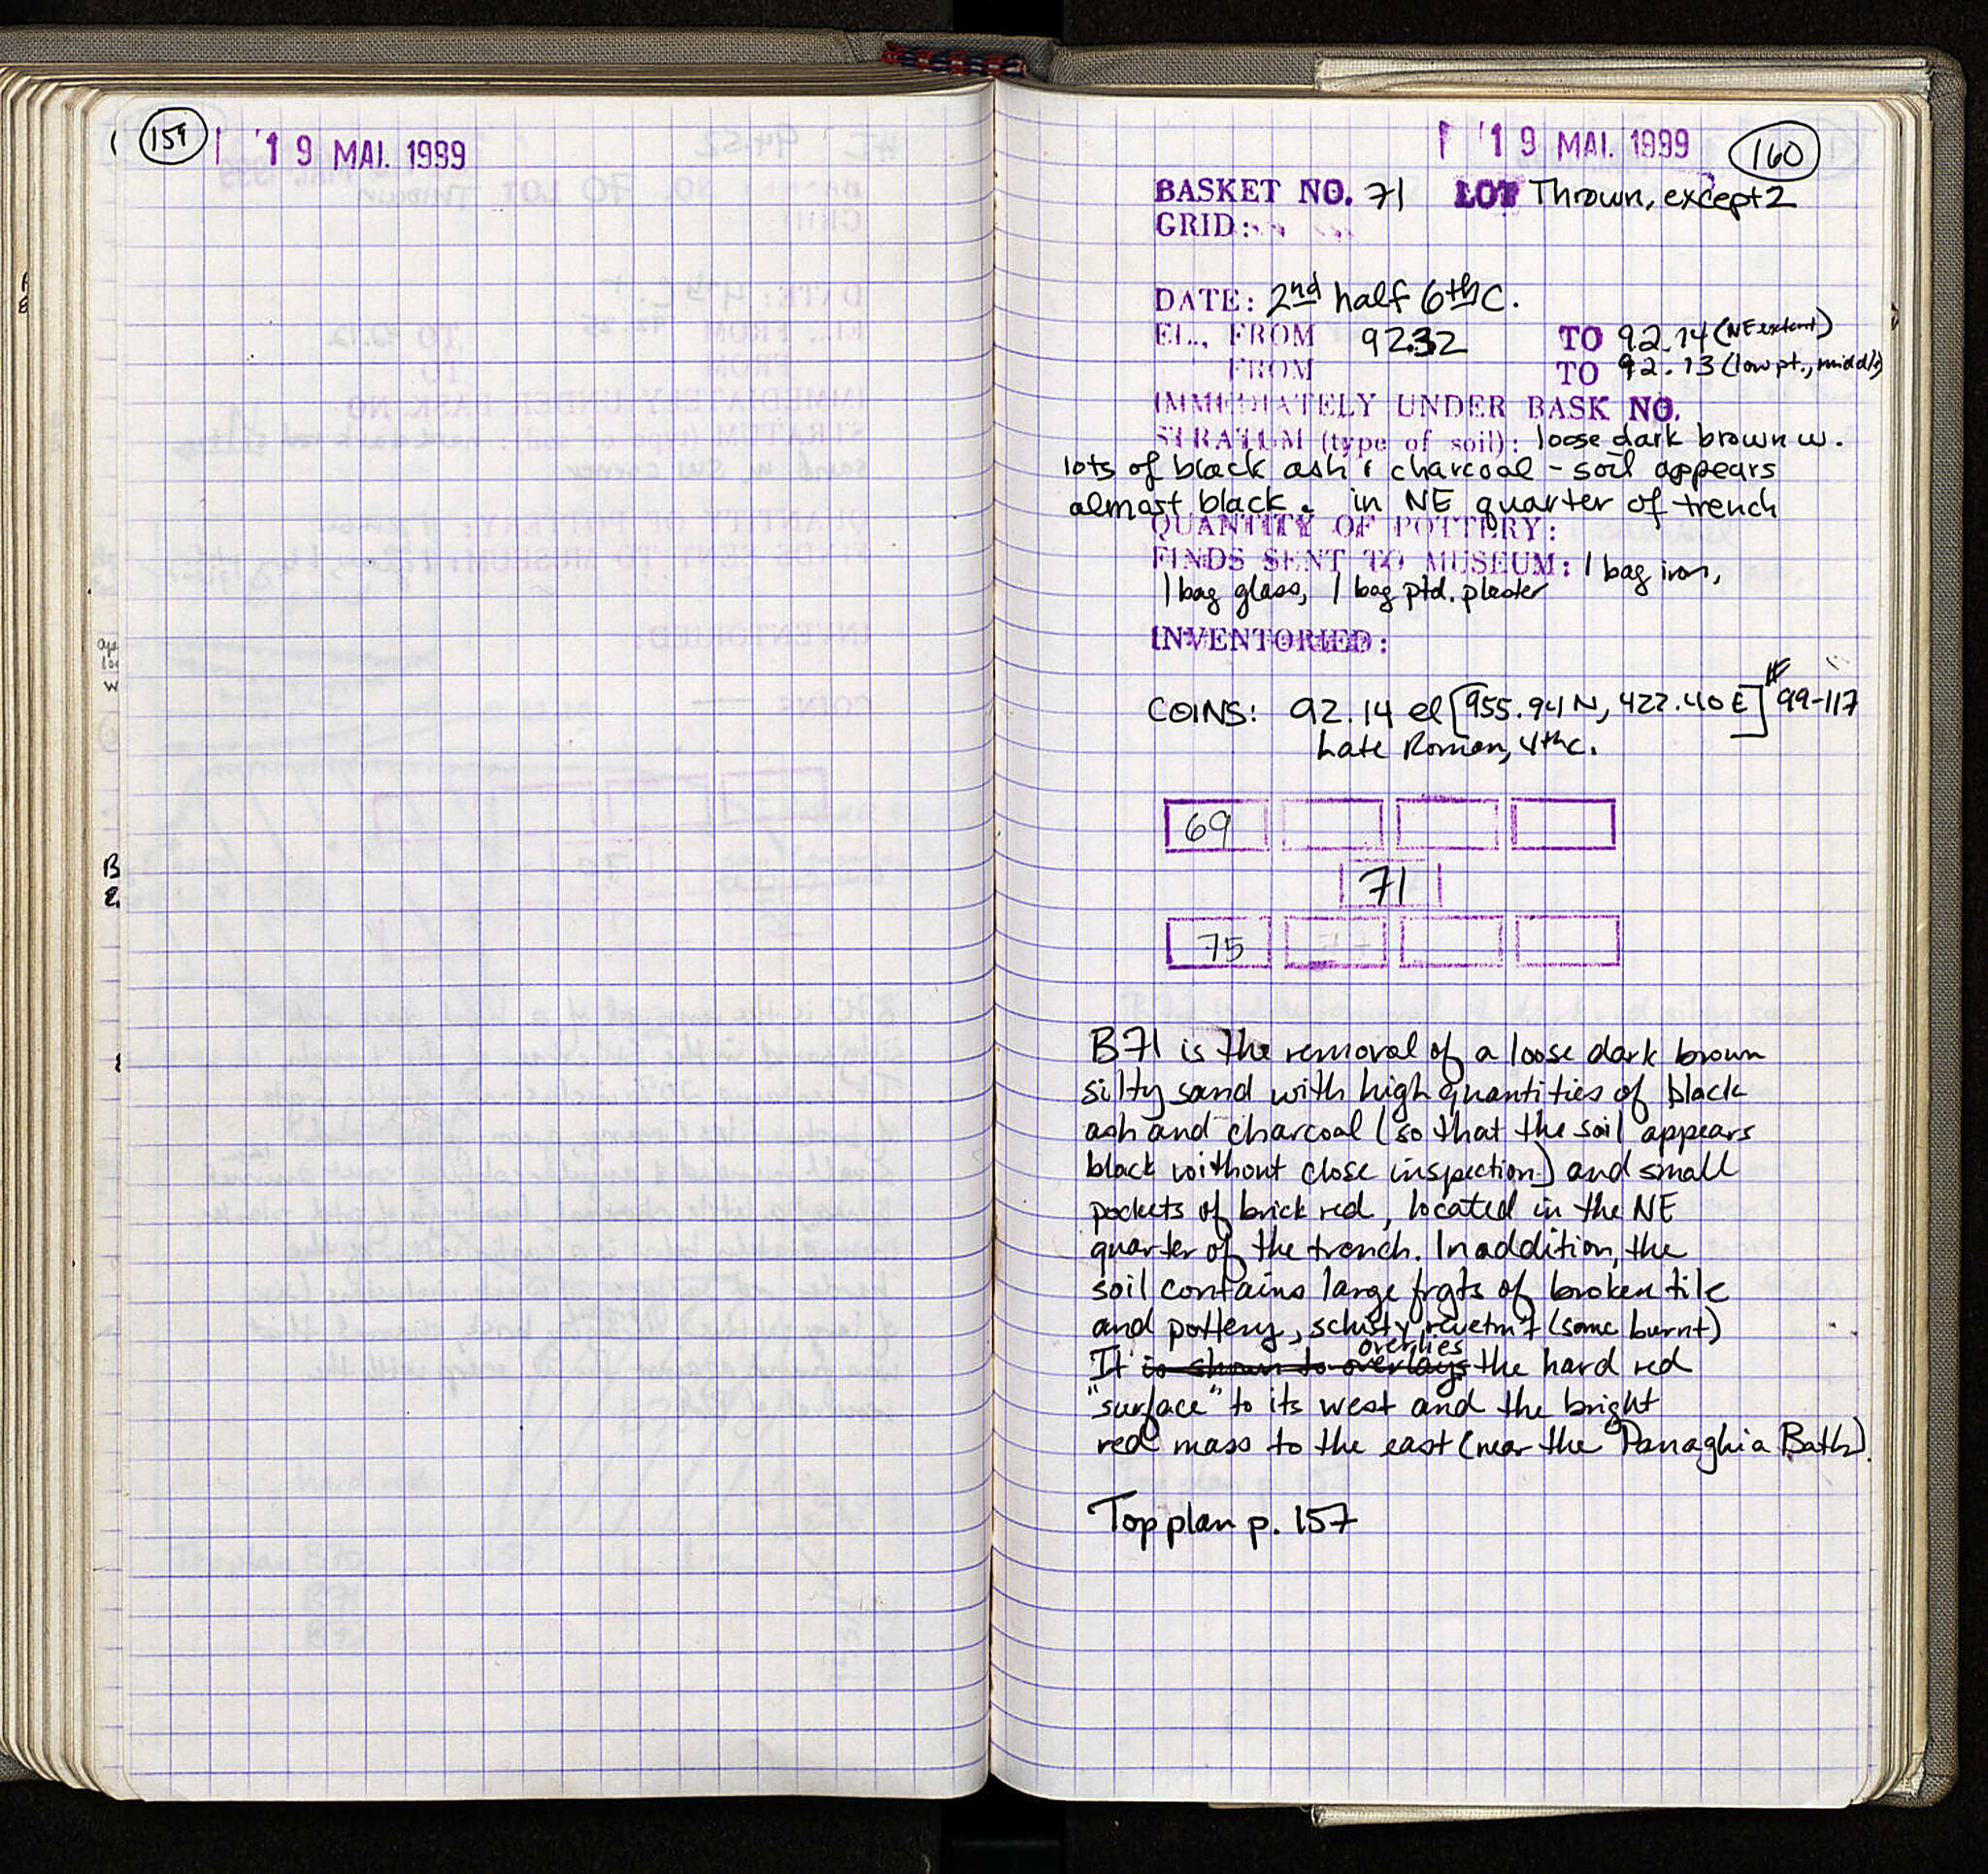 159
19 MAI. 1999
19 MAI. 1999
160
BASKET NO. 71 LOT Thrown, except 2
GRID:
DATE: 2nd half 6th c.
EL., FROM 92.32 TO 92.14 (NE extent)
FROM TO 92.13 (low pt., middle)
IMMEDIATELY UNDER BASK NO.
STRATUM (type of soil): loose dark brown w.
lots of black ash & charcoal - soil appears
almost black. in NE quarter of trench
QUANTITY OF POTTERY:
FINDS SENT TO MUSEUM: 1 bag iron,
1 bag glass, 1 bag ptd. plaster
INVENTORIED:
COINS: 92.14 el [955.94 N, 422.40 E] # 99-117
Late Roman, 4th c.
69
71
75
B71 is the removal of a loose dark brown
silty sand with high quantities of black
ash and charcoal (so that the soil appears
black without close inspection) and small
pockets of brick red, located in the NE
quarter of the trench. In addition, the
soil contains large frgts of broken tile
and pottery, schisty revetm't (some burnt)
overlies
It is shown to overlays the hard red
"surface" to its west and the bright
red mass to the east (near the Panaghia Bath).
Top plan p. 157